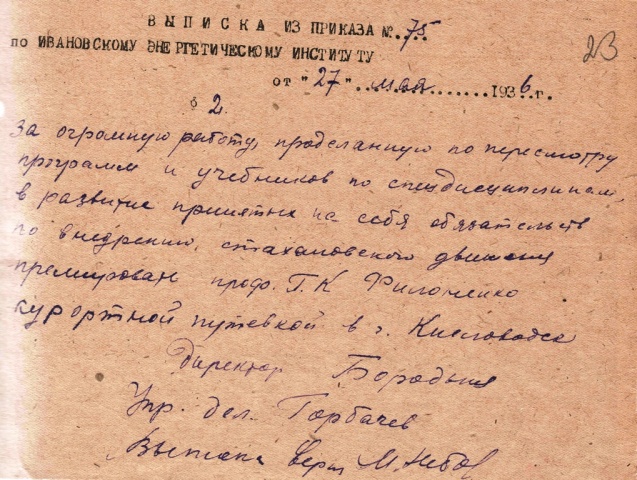 ВЫПИСКА ИЗ ПРИКАЗА №.75..
23
по ИВАНОВСКОМУ ЭНЕРГЕТИЧЕСКОМУ ИНСТИТУТУ
от "27"..мая........1936.г.
§ 2.
За огромную работу, проделанную по пересмотру
программ и учебников по спецдисциплинам,
в развитие принятых на себя обязательств
по внедрению, стахановского движения
премирован проф. Г.К Филоненко
курортной путевкой в г. Кисловодск
Директор Бородин
Упр. дел. Горбачев
Выписка верн